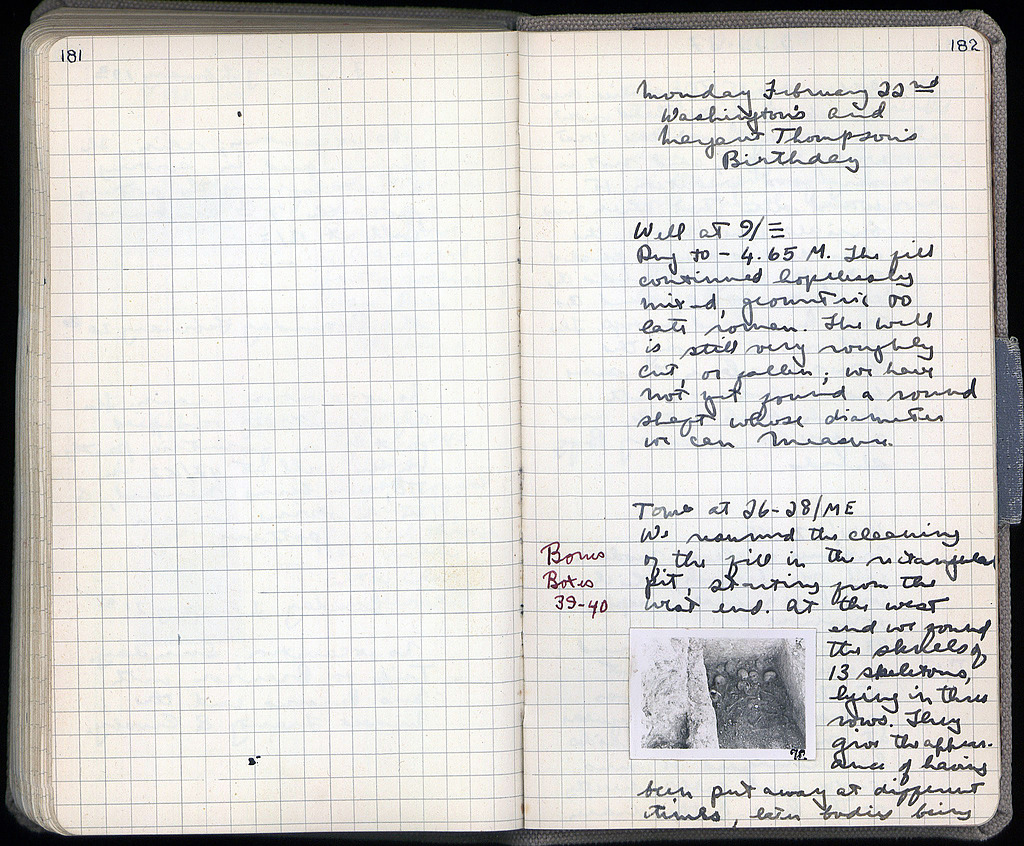 181
182
Monday February 22nd
Washington's and
Margaret Thompson's
Birthday
Well at 9/Ξ
Dug to - 4.65 M. The fill
continued hopelessly
mixed, geometric to
late roman. The well
is still very roughly
cut, or fallen; we have
not yet found a round
shaft whose diameter
we can measure.
Tomb at 26-28/ME
We resumed the cleaning
of the fill in the rectangular
pit, starting from the
west end. At the west
end we found
the skulls of
13 skeletons,
lying in three
rows. They
give the appear-
ance of having
been put away at different
times, later bodies being
Bones
Boxes
39-40
98.